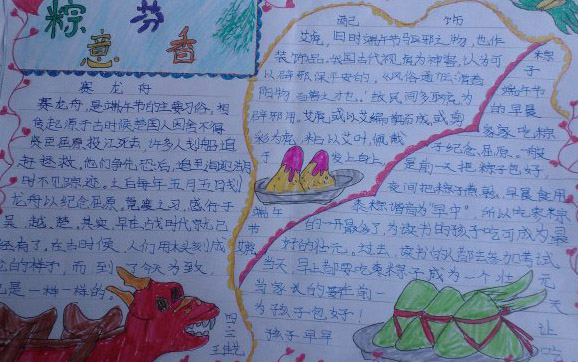 粽
芬
意
香
赛龙舟
赛龙舟，是端午节的主要习俗，相
传起源于古时候楚国人因舍不得
贤臣屈原投江死去，许多人划船追
赶拯救。他们争先恐后，追至洞庭湖
时不见踪迹。之后每年五月五日划
龙舟以纪念屈原。竞渡之习，盛行于
吴、越、楚。其实，早在战国时代就已
经有了。在古时候，人们用木头刻成
龙的样子，而到了今天为致，
也是一样一样的。
配饰
艾虎，旧时端午节驱邪之物，也作
装饰品，我国古代视虎为神兽，认为可
以辟邪保平安的，《风俗通》
阳物，百兽之
故民间多取虎为
辟邪用。艾虎，或以艾编剪而成，或剪
彩为虎，粘以艾叶，佩戴
于
发上身上。
粽子
端午节
的早晨
家家吃粽
子纪念屈原。一般
是前一天把粽子包好
夜间把粽子煮熟，早晨食用
枣粽谐音为“早中”，所以吃枣粽
的
最多了，为读书的孩子吃可成为最
好的状元。过去，读书的人都去参加考试
当天，早上都要吃枣粽子成为一个状元
当家长的要在前一天
为孩子包好！让
孩子早早吃
端午节
四三